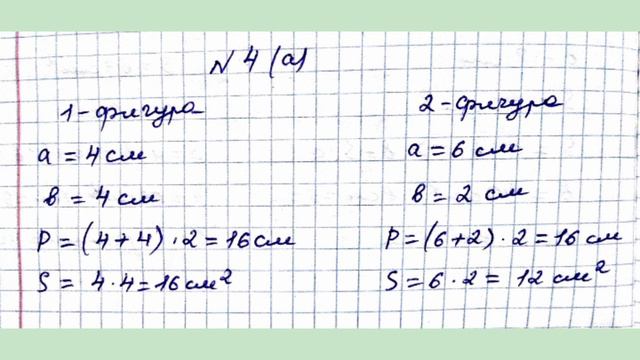 № 4 (а)
1-фигура
а = 4 см
в = 4 см
Р = (4 + 4) · 2 = 16 см
S = 4 · 4 = 16 см²
2-фигура
а = 6 см
в = 2 см
Р = (6 + 2) · 2 = 16 см
S = 6 · 2 = 12 см²